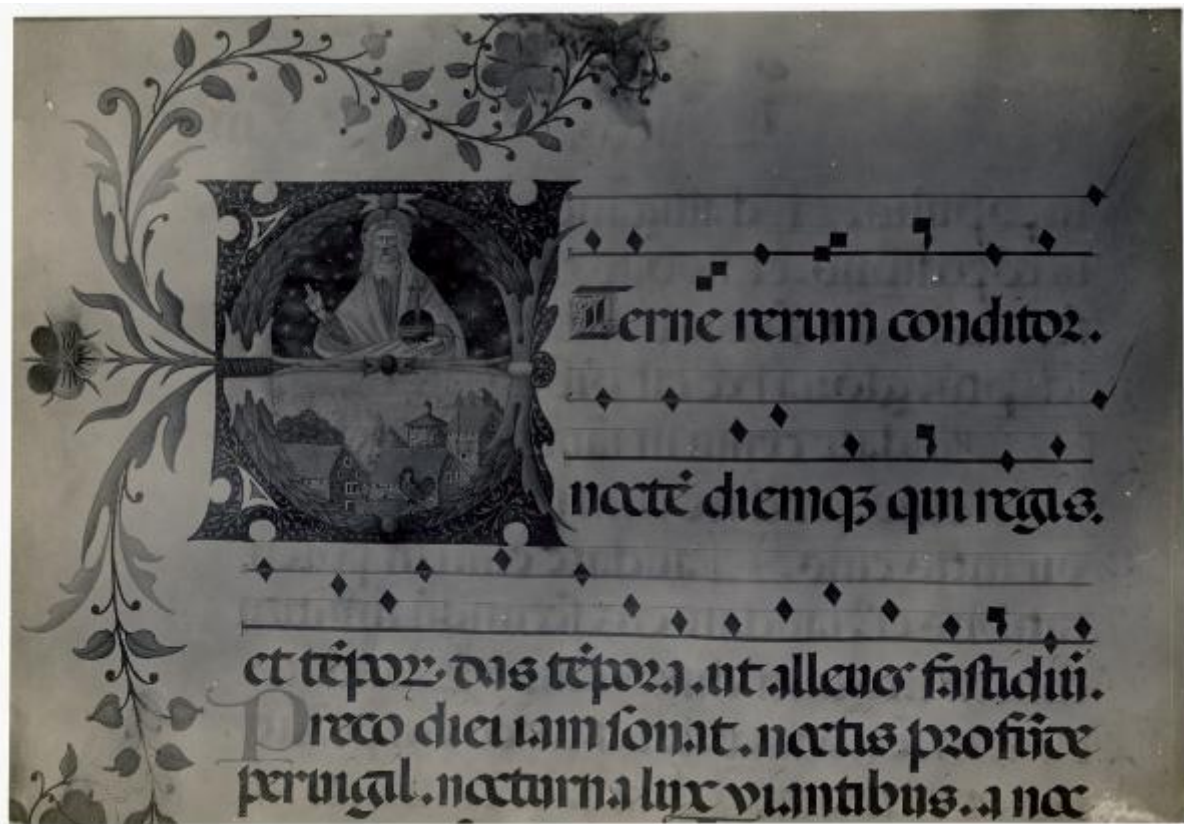 ETerne rerum conditor.
noctē diemqꝫ qui regis.
et tēpoꝝ das tēpora. ut alleues fastidiū.
Preco diei iam sonat. noctis profūde
peruigil. nocturna lux viantibus. a noc